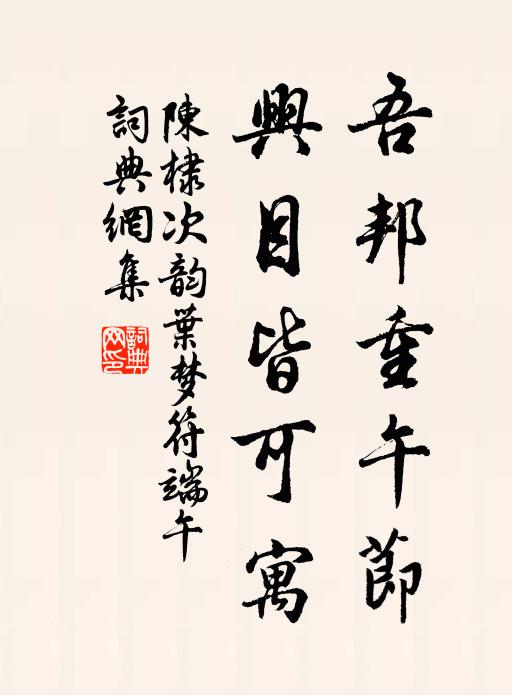 吾邦重午節
興目皆可寓
陳棣次韵葉梦符端午
詞典網集
詞典網印